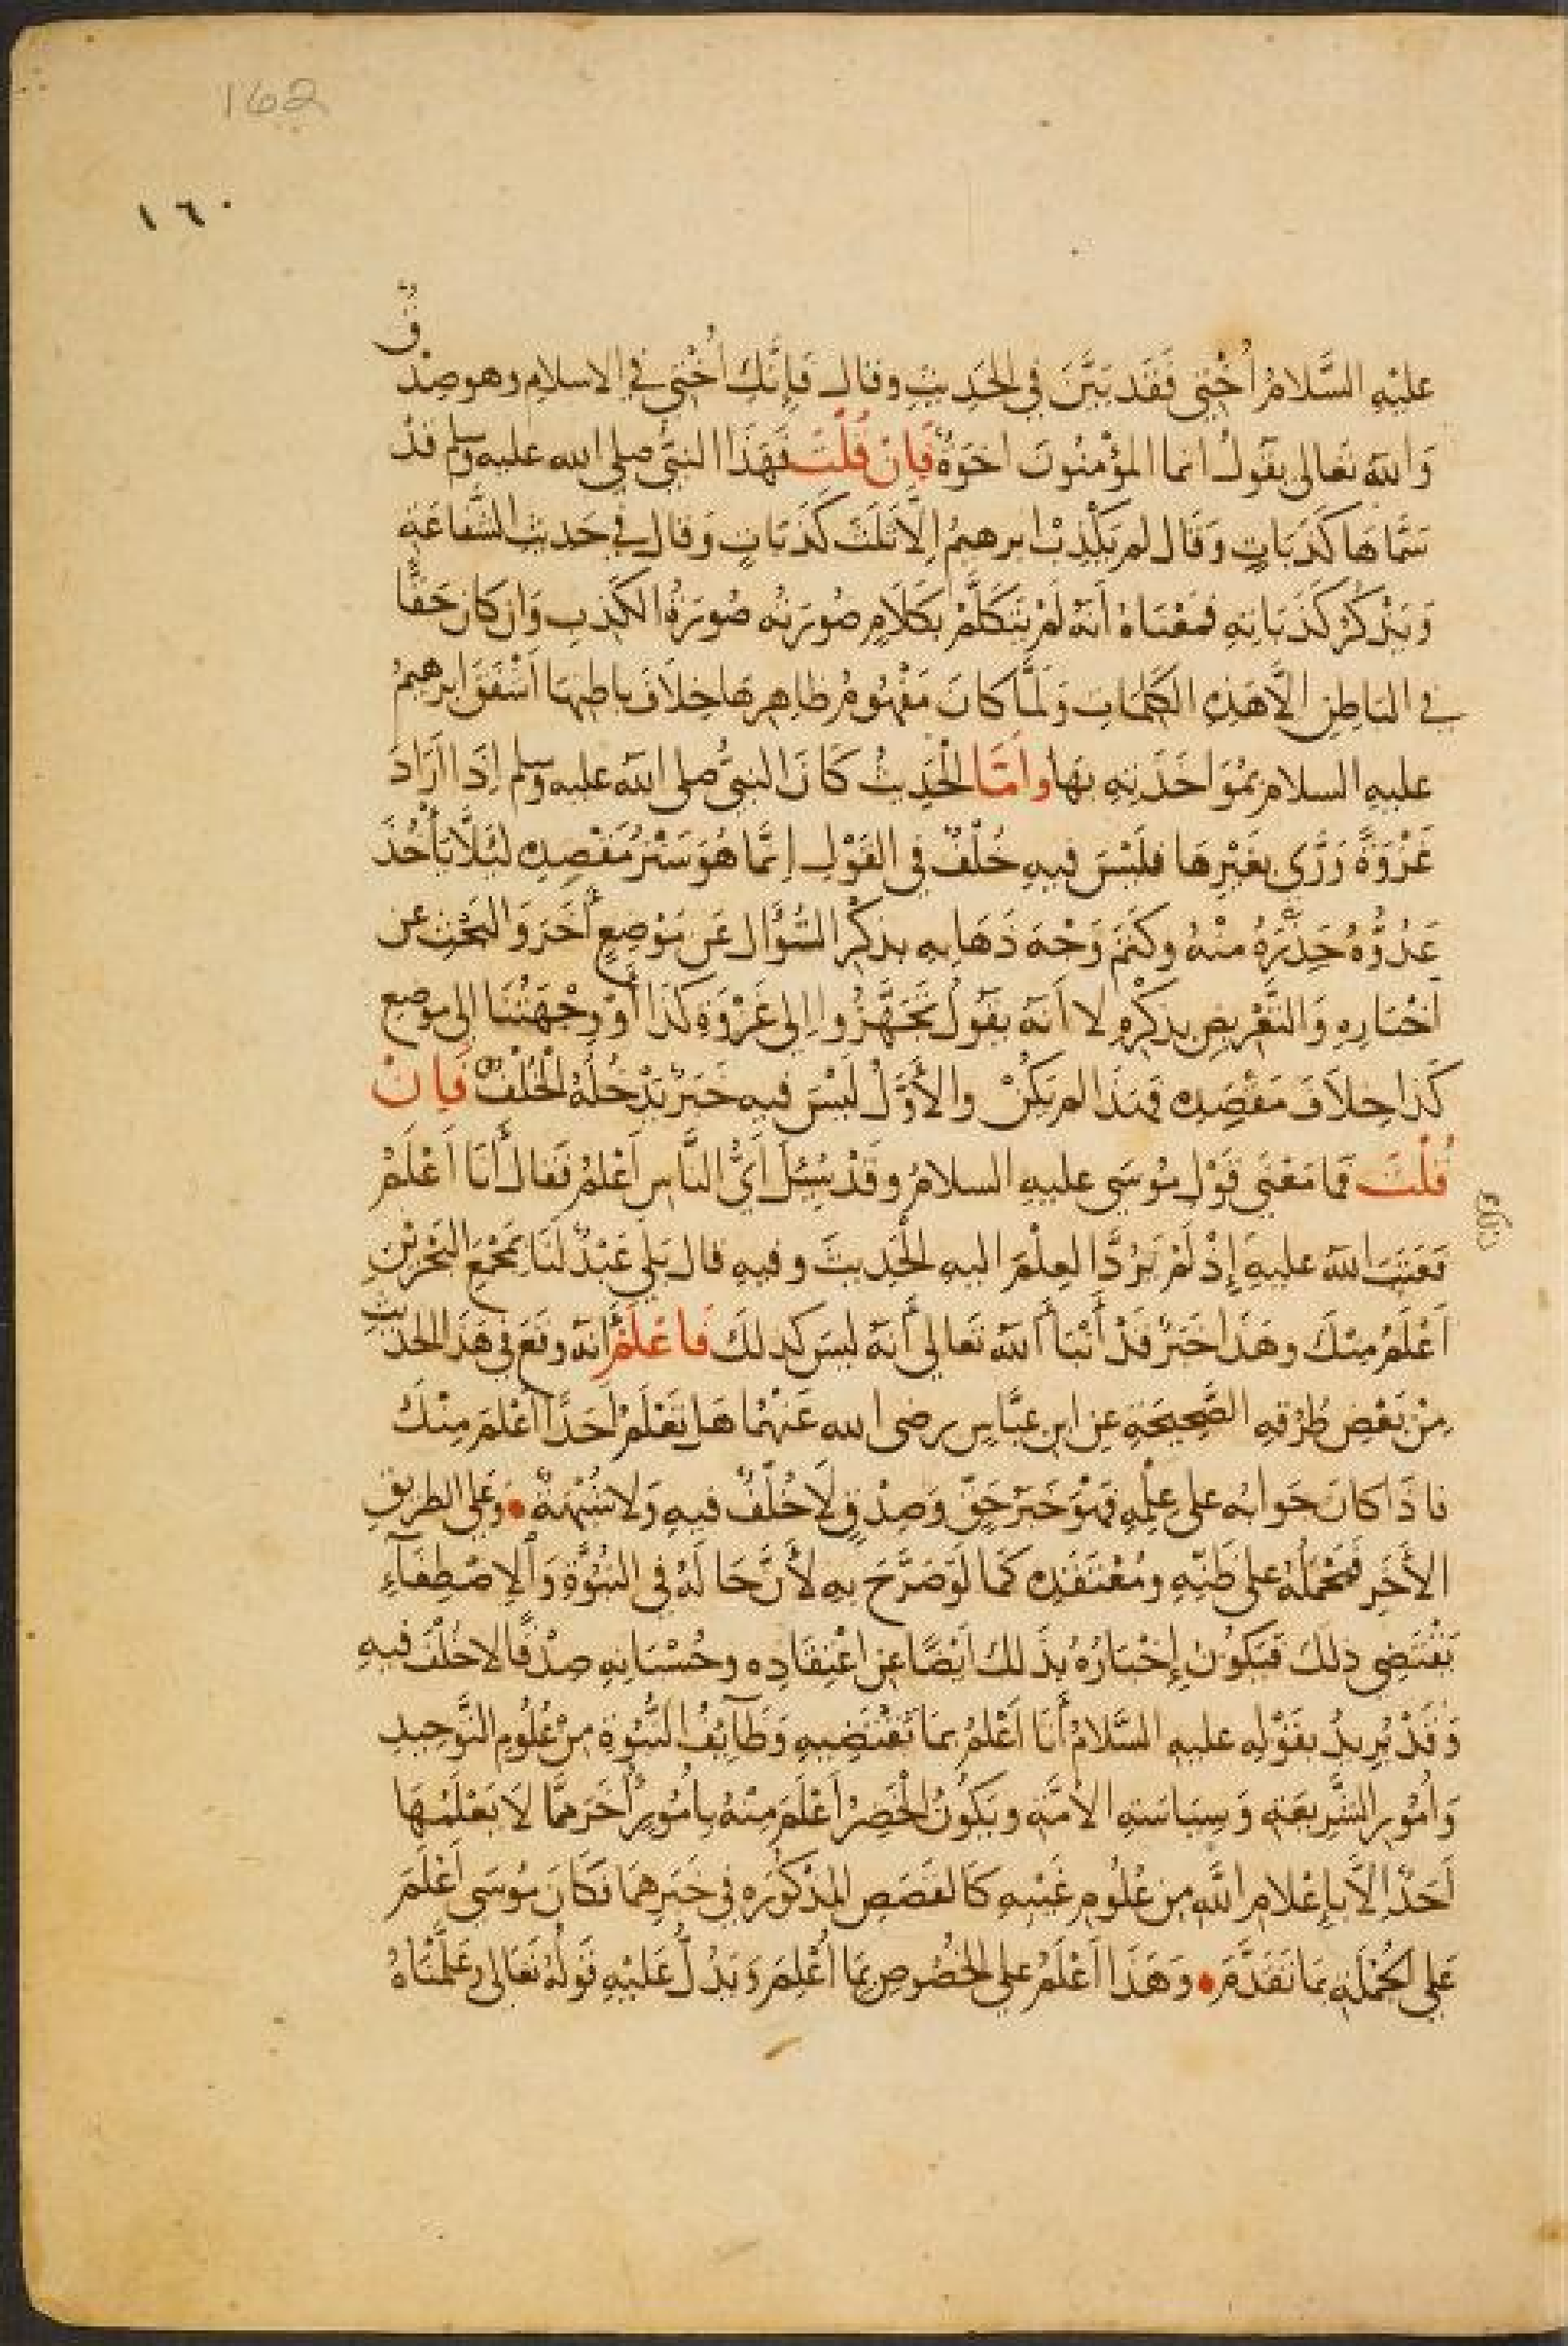 162
١٦٠
عليْهِ السَّلامُ اُخْتِى فَقَد بَيَّنَ فى الحَدِيثِ وقال فَإِنَّكِ اُخْتِى فى الاسلامِ وهو صِدْقٌ
وَاللّٰه تعالى يَقُولُ انما المؤْمنُونَ اخوَةٌ فَإِنْ قُلْتَ فَهَذَا النبىُّ صلى الله عليه وسلم قدْ
سَمَّاهَا كَذَبَاتٍ وَقَال لم يَكْذِبْ ابرهيمُ إلّا ثَلَثَ كَذَبَاتٍ وَقال فى حَديث الشَّفاعَةِ
وَيَذْكُرُ كَذَبَاتِهِ فَمَعْنَاهُ أَنّهُ لَمْ يَتَكَلَّمْ بكَلَامٍ صُورَتُه صُورَةُ الكَذِبِ وَان كان حَقًّا
فى البَاطِنِ الَّا هَذِهِ الكَلِمَاتِ وَلَمَّا كَانَ مَفْهُومُ ظاهِرِهَا خِلَافَ باطِنِهَا اَشْفَقَ ابرهيمُ
عليهِ السلام بمُوَاخَذَتِهِ بهَا وامّا الحَدِيثُ كَانَ النبىُّ صلى اللّٰه عليه وسلم إذَا ارَادَ
غَزْوَةً وَرَّى بغَيْرِهَا فلَيْسَ فيهِ خُلْفٌ فى القَوْلِ اِنَّمَا هُوَ سَتْرُ مَقْصِدِهِ لئِلَّا يَأْخُذَ
عَدُوُّهُ حِذْرَهُ منْهُ وكَتَمَ وَجْهَ ذَهَابِهِ بذكْرِ السُّؤَال عَن مَوْضِعٍ أٰخَرَ وَالبَحْثِ عن
اَخْبَارِهِ وَالتَّعْرِيضِ بذِكْرِهِ لا اَنّه يقُولُ تَجَهَّزُوا اِلى غَزْوَةِ كَذَا أوْ وِجْهَتُنَا الى موضعِ
كَذا خِلَافَ مَقْصِدِهِ فهَذَا لم يَكُنْ والأوَّلُ لَيْسَ فيهِ خَبَرٌ يَدْخُلُهُ الخُلْفُ فَإِنْ
قُلْتَ فمَا مَعْنَى قَوْلِ مُوسَى عليهِ السلامُ وقَدْ سُئِلَ اَىُّ النَّاسِ اَعْلمُ فَقال أنَا اَعْلَمُ
فَعَتَبَ اللّٰه عليهِ إِذْ لَمْ يَرُدَّ العِلْمَ اليهِ الحَدِيثَ وفيهِ قال بَلى عَبْدٌ لَنَا بمَجْمَعِ البَحْرَيْنِ
اَعْلَمُ مِنكَ وهَذَا خَبَرٌ قَدْ أَنْبَأ اللّٰه تَعالى أنّه ليسَ كذلكَ فاعْلَمْ انّهُ وقَعَ فى هَذَا الحَدِيثِ
مِنْ بَعْضِ طُرُقِهِ الصَّحِيحَةِ عن ابن عبَّاسٍ رضى الله عَنْهُمَا هَل تَعْلَمُ اَحَدًا اَعْلَمَ مِنْكَ
فاذَا كانَ جَوَابُه على عِلْمِهِ فهُوَ خَبَرٌ حَقٌّ وَصِدْقٌ لَا خُلْفَ فيهِ وَلا شُبْهَةَ وعلى الطريقِ
الأٰخَرِ فَمَحْمَلُهُ على ظَنِّهِ ومُعْتَقَدِهِ كَمَا لَوْ صَرَّحَ بهِ لأَنَّ حَالَهُ فى النبُوَّةِ وَالإصْطِفَآءِ
يَقْتَضِى ذلكَ فَيَكُونُ إِخْبَارُهُ بذَلك اَيْضًا عن اعْتِقَادِه وحُسْبَانِهِ صِدْقًا لا خُلْفَ فيهِ
وَقَدْ يُرِيدُ بقَوْلِهِ عليهِ السَّلامُ أنَا اَعْلمُ بمَا تَقْتَضِيهِ وَظَآئِفُ النُّبُوّةِ مِنْ عُلُومِ التَّوْحيدِ
وَاُمُورِ الشَّرِيعَةِ وَسِيَاسَةِ الامَّةِ ويَكُونُ الخَضِرُ اَعْلَمَ منْهُ بأُمُورٍ أُخَرَ ممَّا لَا يَعْلَمُهَا
اَحَدٌ إلَّا بإعْلَامِ اللّٰهِ من عُلُومِ غَيْبِهِ كَالقَصَصِ المذْكُورَةِ فى خَبَرِهِمَا فكَانَ مُوسَى اَعْلَمَ
عَلى الجُمْلَةِ بمَا تَقَدَّمَ وَهَذَا اَعْلَمُ على الخُصُوصِ بمَا اُعْلِمَ وَيَدُلُّ عَلَيْهِ قَوْلُهُ تَعَالى وعَلَّمْنَاهُ